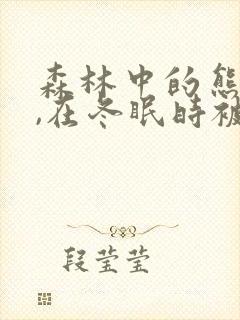 森林中的熊
,在冬眠时被
段莹莹